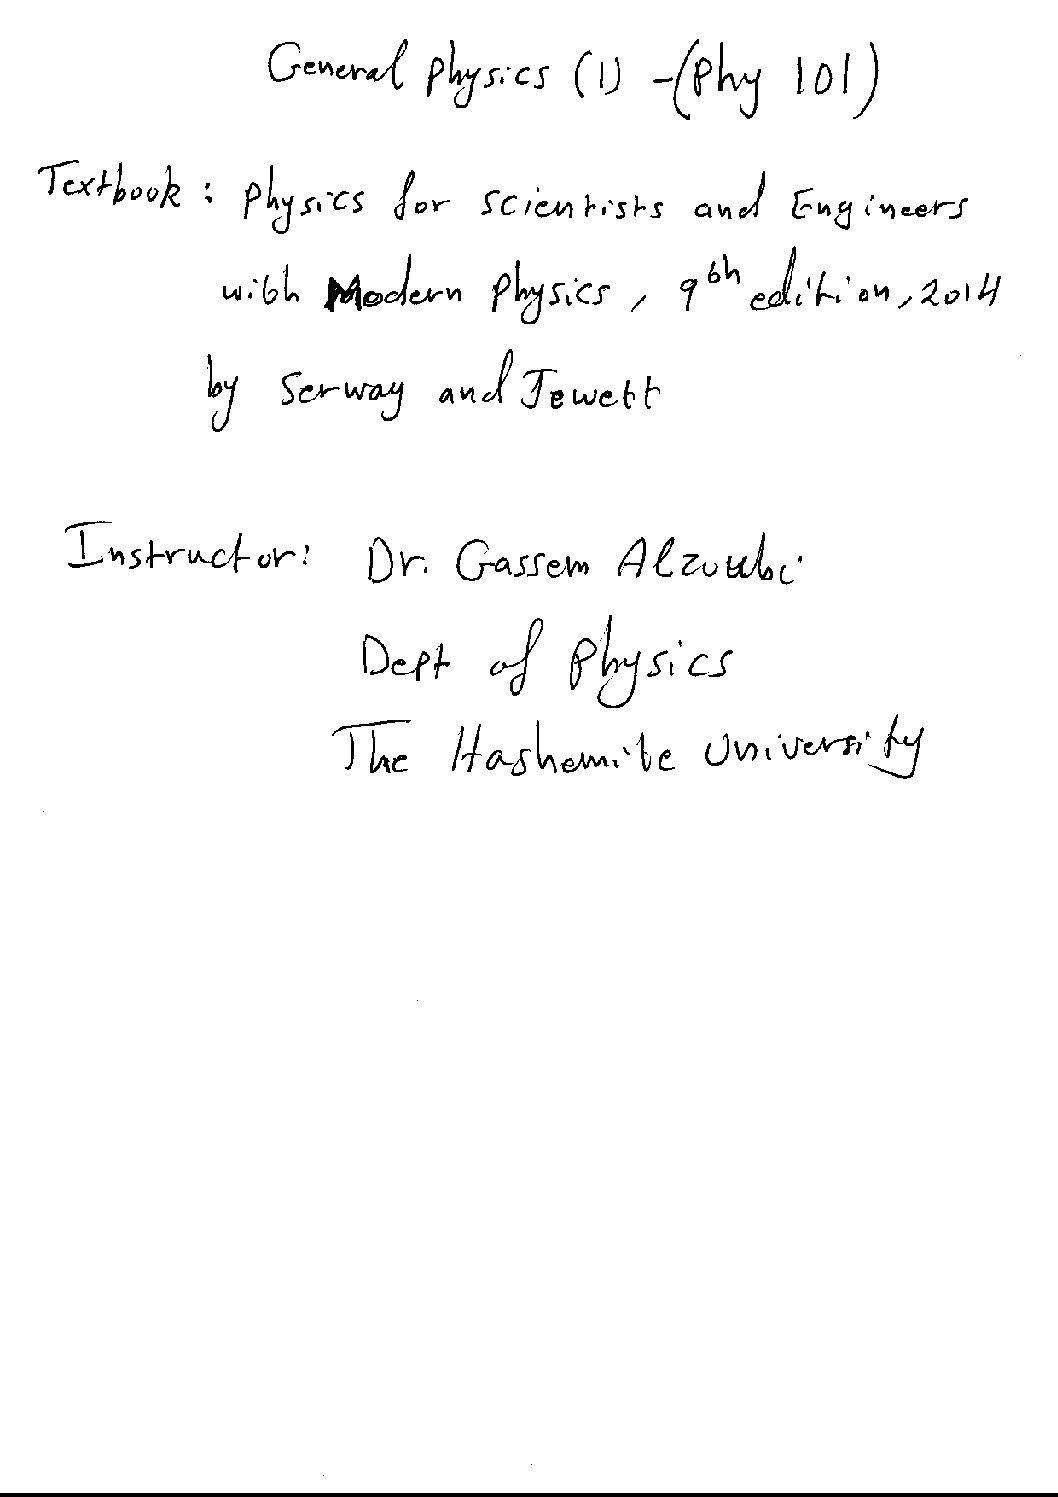 General Physics (1) - (Phy 101)
Textbook: Physics for scientists and Engineers
with Modern Physics, 9th edition, 2014
by Serway and Jewett
Instructor: Dr. Gassem Alzoubi
Dept of Physics
The Hashemite University